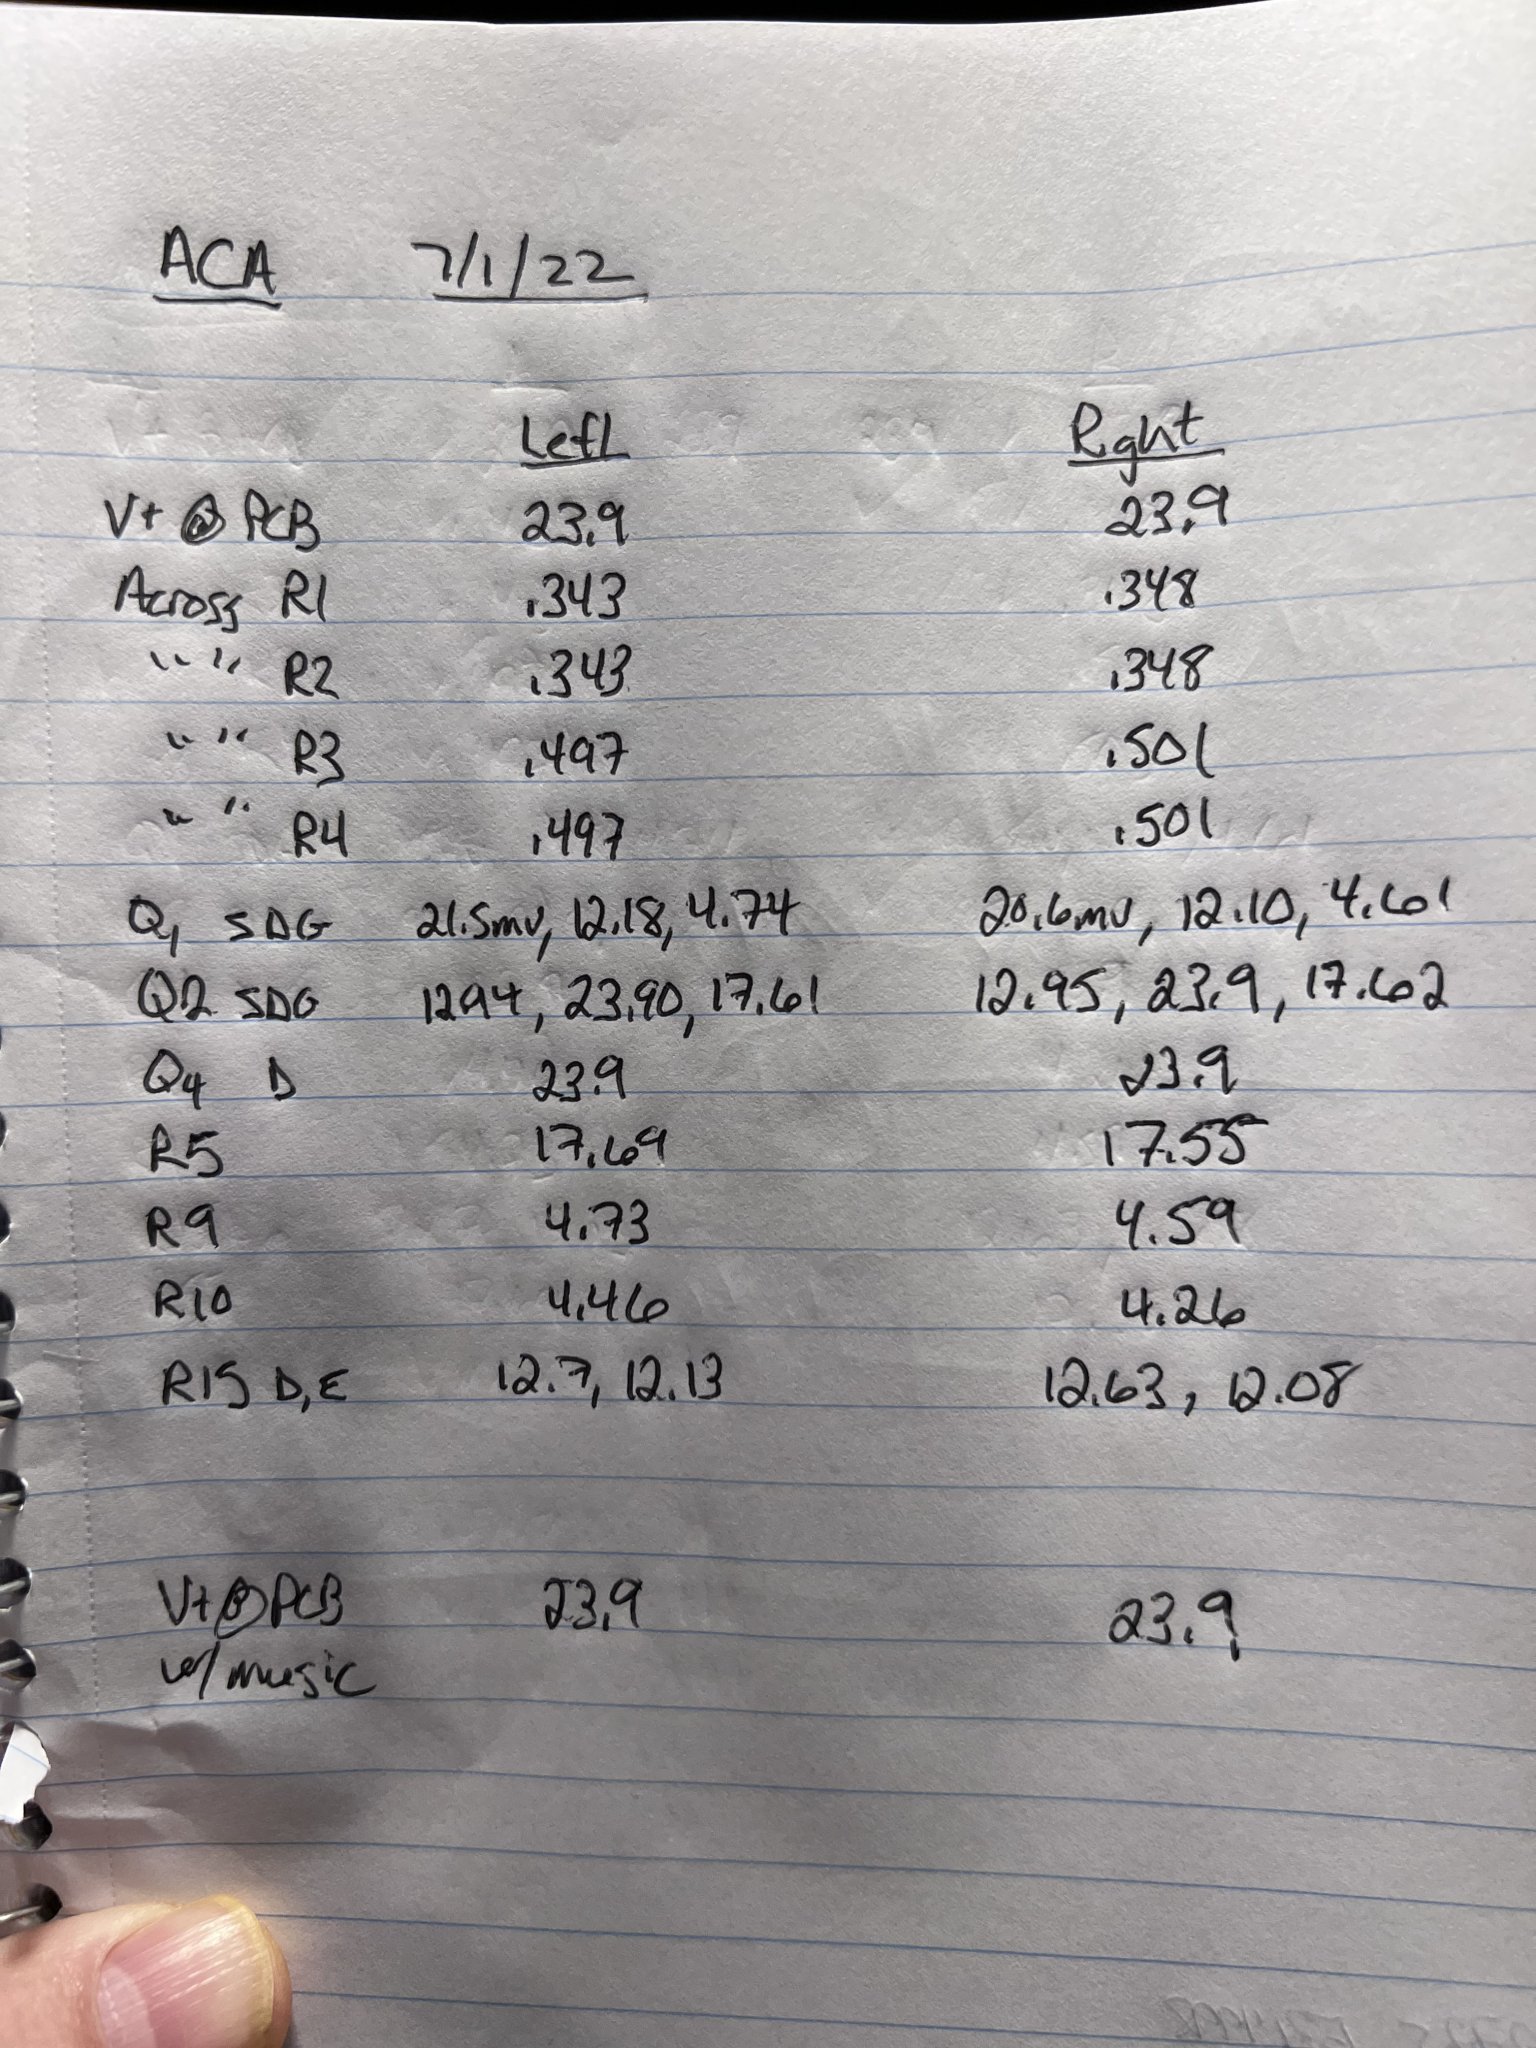 ACA 7/1/22
Left Right
V+ @ PCB 23.9 23.9
Across R1 .343 .348
" " R2 .343 .348
" " R3 .497 .501
" " R4 .497 .501
Q1 SDG 21.5mv, 12.18, 4.74 20.6mv, 12.10, 4.61
Q2 SDG 12.94, 23.90, 17.61 12.95, 23.9, 17.62
Q4 D 23.9 23.9
R5 17.69 17.55
R9 4.73 4.59
R10 4.46 4.26
R15 D,E 12.7, 12.13 12.63, 12.08
V+ @ PCB 23.9 23.9
w/ music